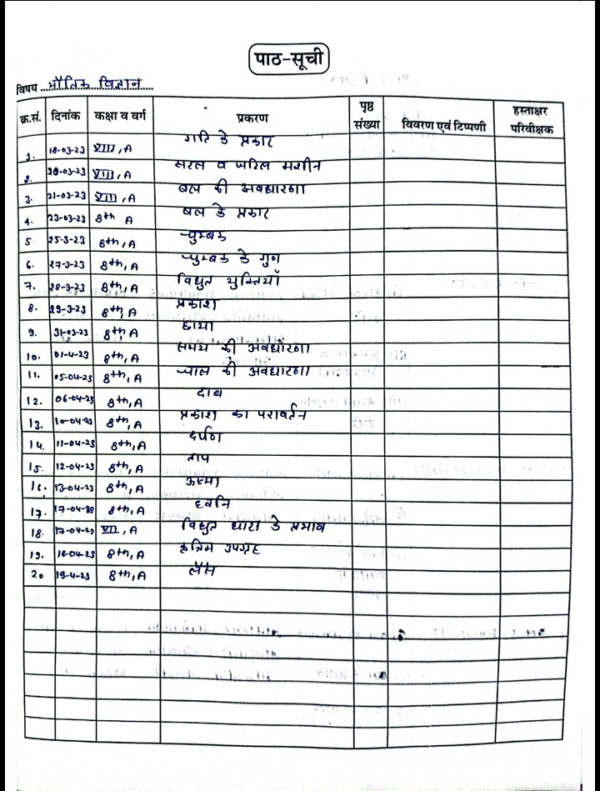 पाठ-सूची
विषय ...भौतिक विज्ञान...
क्र.सं. दिनांक कक्षा व वर्ग प्रकरण पृष्ठ संख्या विवरण एवं टिप्पणी हस्ताक्षर परिवीक्षक
1. 18-03-23 VIII, A गति के प्रकार
2. 20-03-23 VIII, A सरल व जटिल मशीन
3. 21-03-23 VIII, A बल की अवधारणा
4. 23-03-23 8th A बल के प्रकार
5 25-3-23 8th, A चुम्बक
6. 27-3-23 8th, A चुम्बक के गुण
7. 28-3-23 8th, A विधुत युक्तियाँ
8. 29-3-23 8th, A प्रकाश
9. 31-03-23 8th, A छाया
10. 01-4-23 8th, A समय की अवधारणा
11. 05-04-23 8th, A चाल की अवधारणा
12. 06-04-23 8th, A दाब
13. 10-04-23 8th, A प्रकाश का परावर्तन
14. 11-04-23 8th, A दर्पण
15. 12-04-23 8th, A ताप
16. 13-04-23 8th, A ऊष्मा
17. 17-04-23 8th, A ध्वनि
18. 17-04-23 A विधुत धारा के प्रभाव
19. 18-04-23 8th, A कृत्रिम उपग्रह
20 19-4-23 8th, A लैंस